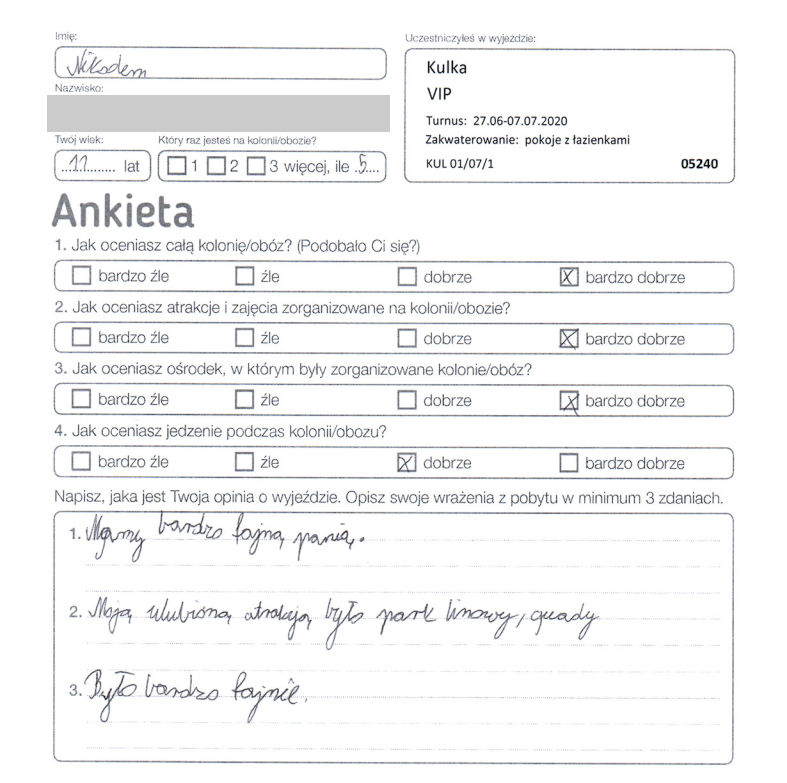 Imię:
Nikodem
Nazwisko:
Twój wiek:
..11........ lat
Który raz jesteś na kolonii/obozie?
1 2 3 więcej, ile .5....
Uczestniczyłeś w wyjeździe:
Kulka
VIP
Turnus: 27.06-07.07.2020
Zakwaterowanie: pokoje z łazienkami
KUL 01/07/1 05240
Ankieta
1. Jak oceniasz całą kolonię/obóz? (Podobało Ci się?)
bardzo źle źle dobrze X bardzo dobrze
2. Jak oceniasz atrakcje i zajęcia zorganizowane na kolonii/obozie?
bardzo źle źle dobrze X bardzo dobrze
3. Jak oceniasz ośrodek, w którym były zorganizowane kolonie/obóz?
bardzo źle źle dobrze X bardzo dobrze
4. Jak oceniasz jedzenie podczas kolonii/obozu?
bardzo źle źle X dobrze bardzo dobrze
Napisz, jaka jest Twoja opinia o wyjeździe. Opisz swoje wrażenia z pobytu w minimum 3 zdaniach.
1. Mamy bardzo fajną panią.
2. Moją ulubioną atrakcją było park linowy, quady
3. Było bardzo fajnie.